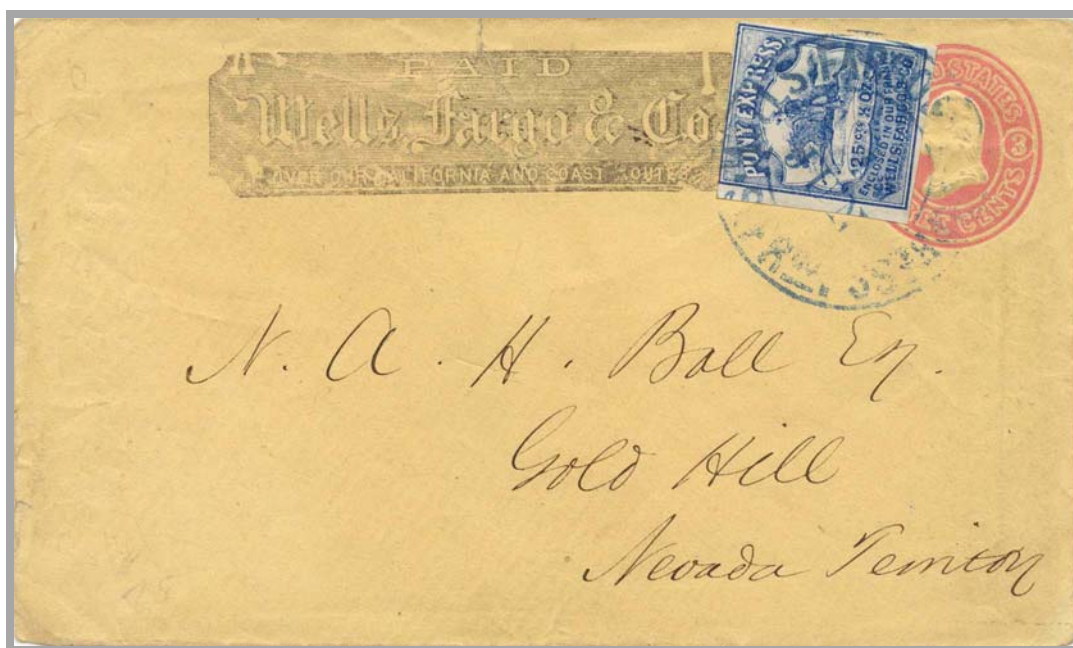 PAID
Wells, Fargo & Co
OVER OUR CALIFORNIA AND COAST ROUTES
PONY EXPRESS.
25 cts ½ OZ.
ENCLOSED IN OUR FRANKS
WELLS, FARGO & CO.
STATES
CENTS
N. A. H. Ball Esq.
Gold Hill
Nevada Territory